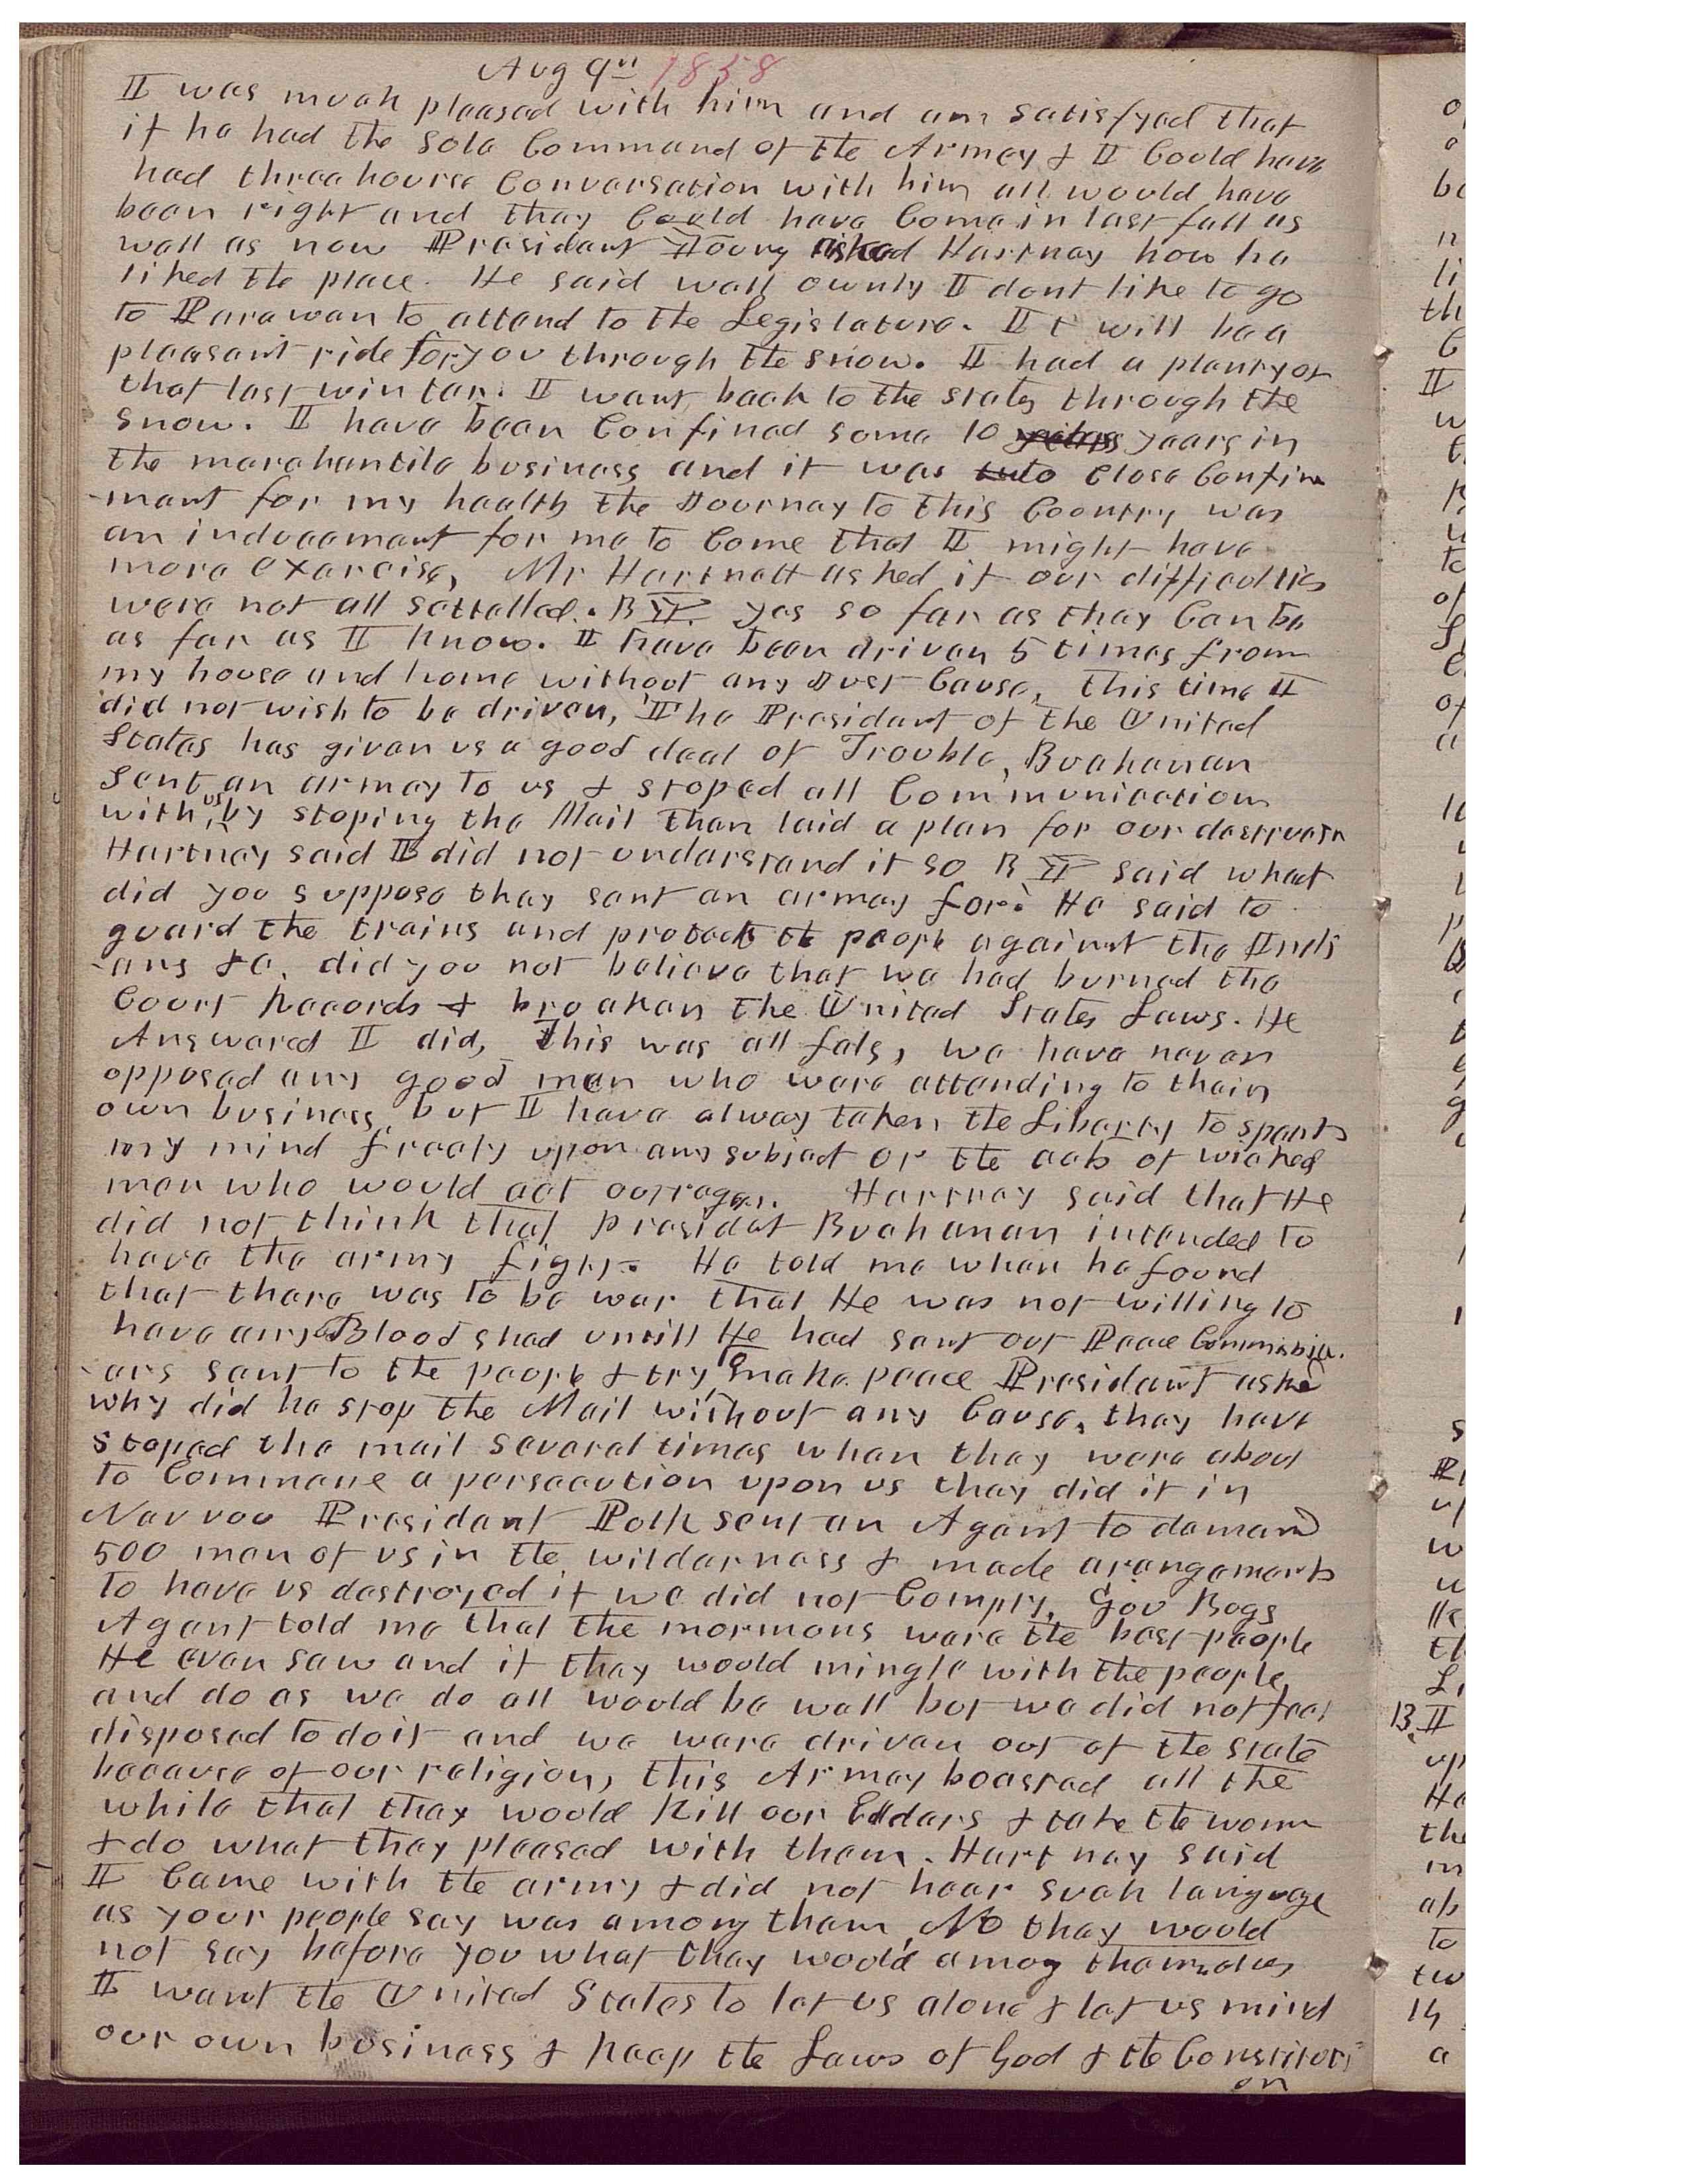 Aug 9th 1858
I was much pleased with him and am satisfyed that
if he had the sole Command of the Armey & I Could have
had three hourse Conversation with him all would have
been right and they Could have Come in last fall as
well as now President Young asked Hartney how he
liked the place. He said well ownly I dont like to go
to Parawan to attend to the Legislature. It will be a
pleasant ride for you through the snow. I had a plenty of
that last winter. I went back to the states through the
snow. I have been Confined some 10 years in
the marchantile business and it was to Close Confin
-ment for my health the Journey to this Country was
an inducement for me to Come that I might have
more exercise, Mr Hartnett asked if our difficulties
were not all settelled. B Y. yes so far as they Can be
as far as I know. I have been driven 5 times from
my house and home without any Just Cause, this time I
did not wish to be driven, The President of the United
States has given us a good deal of Trouble, Buchanan
sent an armey to us & stoped all Communication
with us by stoping the Mail then laid a plan for our destructn
Hartney said I did not understand it so B Y said what
did you suppose they sent an armey for? He said to
guard the trains and protect the people against the Indi
-ans &c. did you not believe that we had burned the
Court Records & broaken the United States Laws. He
Answered I did, this was all fals, we have never
opposed any good men who were attending to their
own business, but I have alway taken the Liberty to speak
my mind freely upon any subject or the acts of wicked
men who would act outrages. Hartney said that He
did not think that presidet Buchanan intended to
have the army fight. He told me when he found
that there was to be war that He was not willing to
have any Blood shed untill He had sent out Peace Commission.
-ers sent to the people & try to make peace President asked
why did he stop the Mail without any Cause, they have
stoped the mail several times when they were about
to Commence a persecution upon us they did it in
Nauvoo President Polk sent an Agent to demand
500 men of us in the wilderness & made arangements
to have us destroyed if we did not Comply. Gov Bogs
Agent told me that the mormons were the best people
He ever saw and if they would mingle with the people
and do as we do all would be well but we did not feel
disposed to do it and we were driven out of the state
because of our religion, this Armey boasted all the
while that they would kill our Elldars & take the womn
& do what they pleased with them. Hartney said
I Came with the army & did not hear such language
as your people say was among them, No they would
not say before you what they would amog themselves
I want the United States to let us alone & let us mind
our own business & keep the Laws of God & the Constituti
on